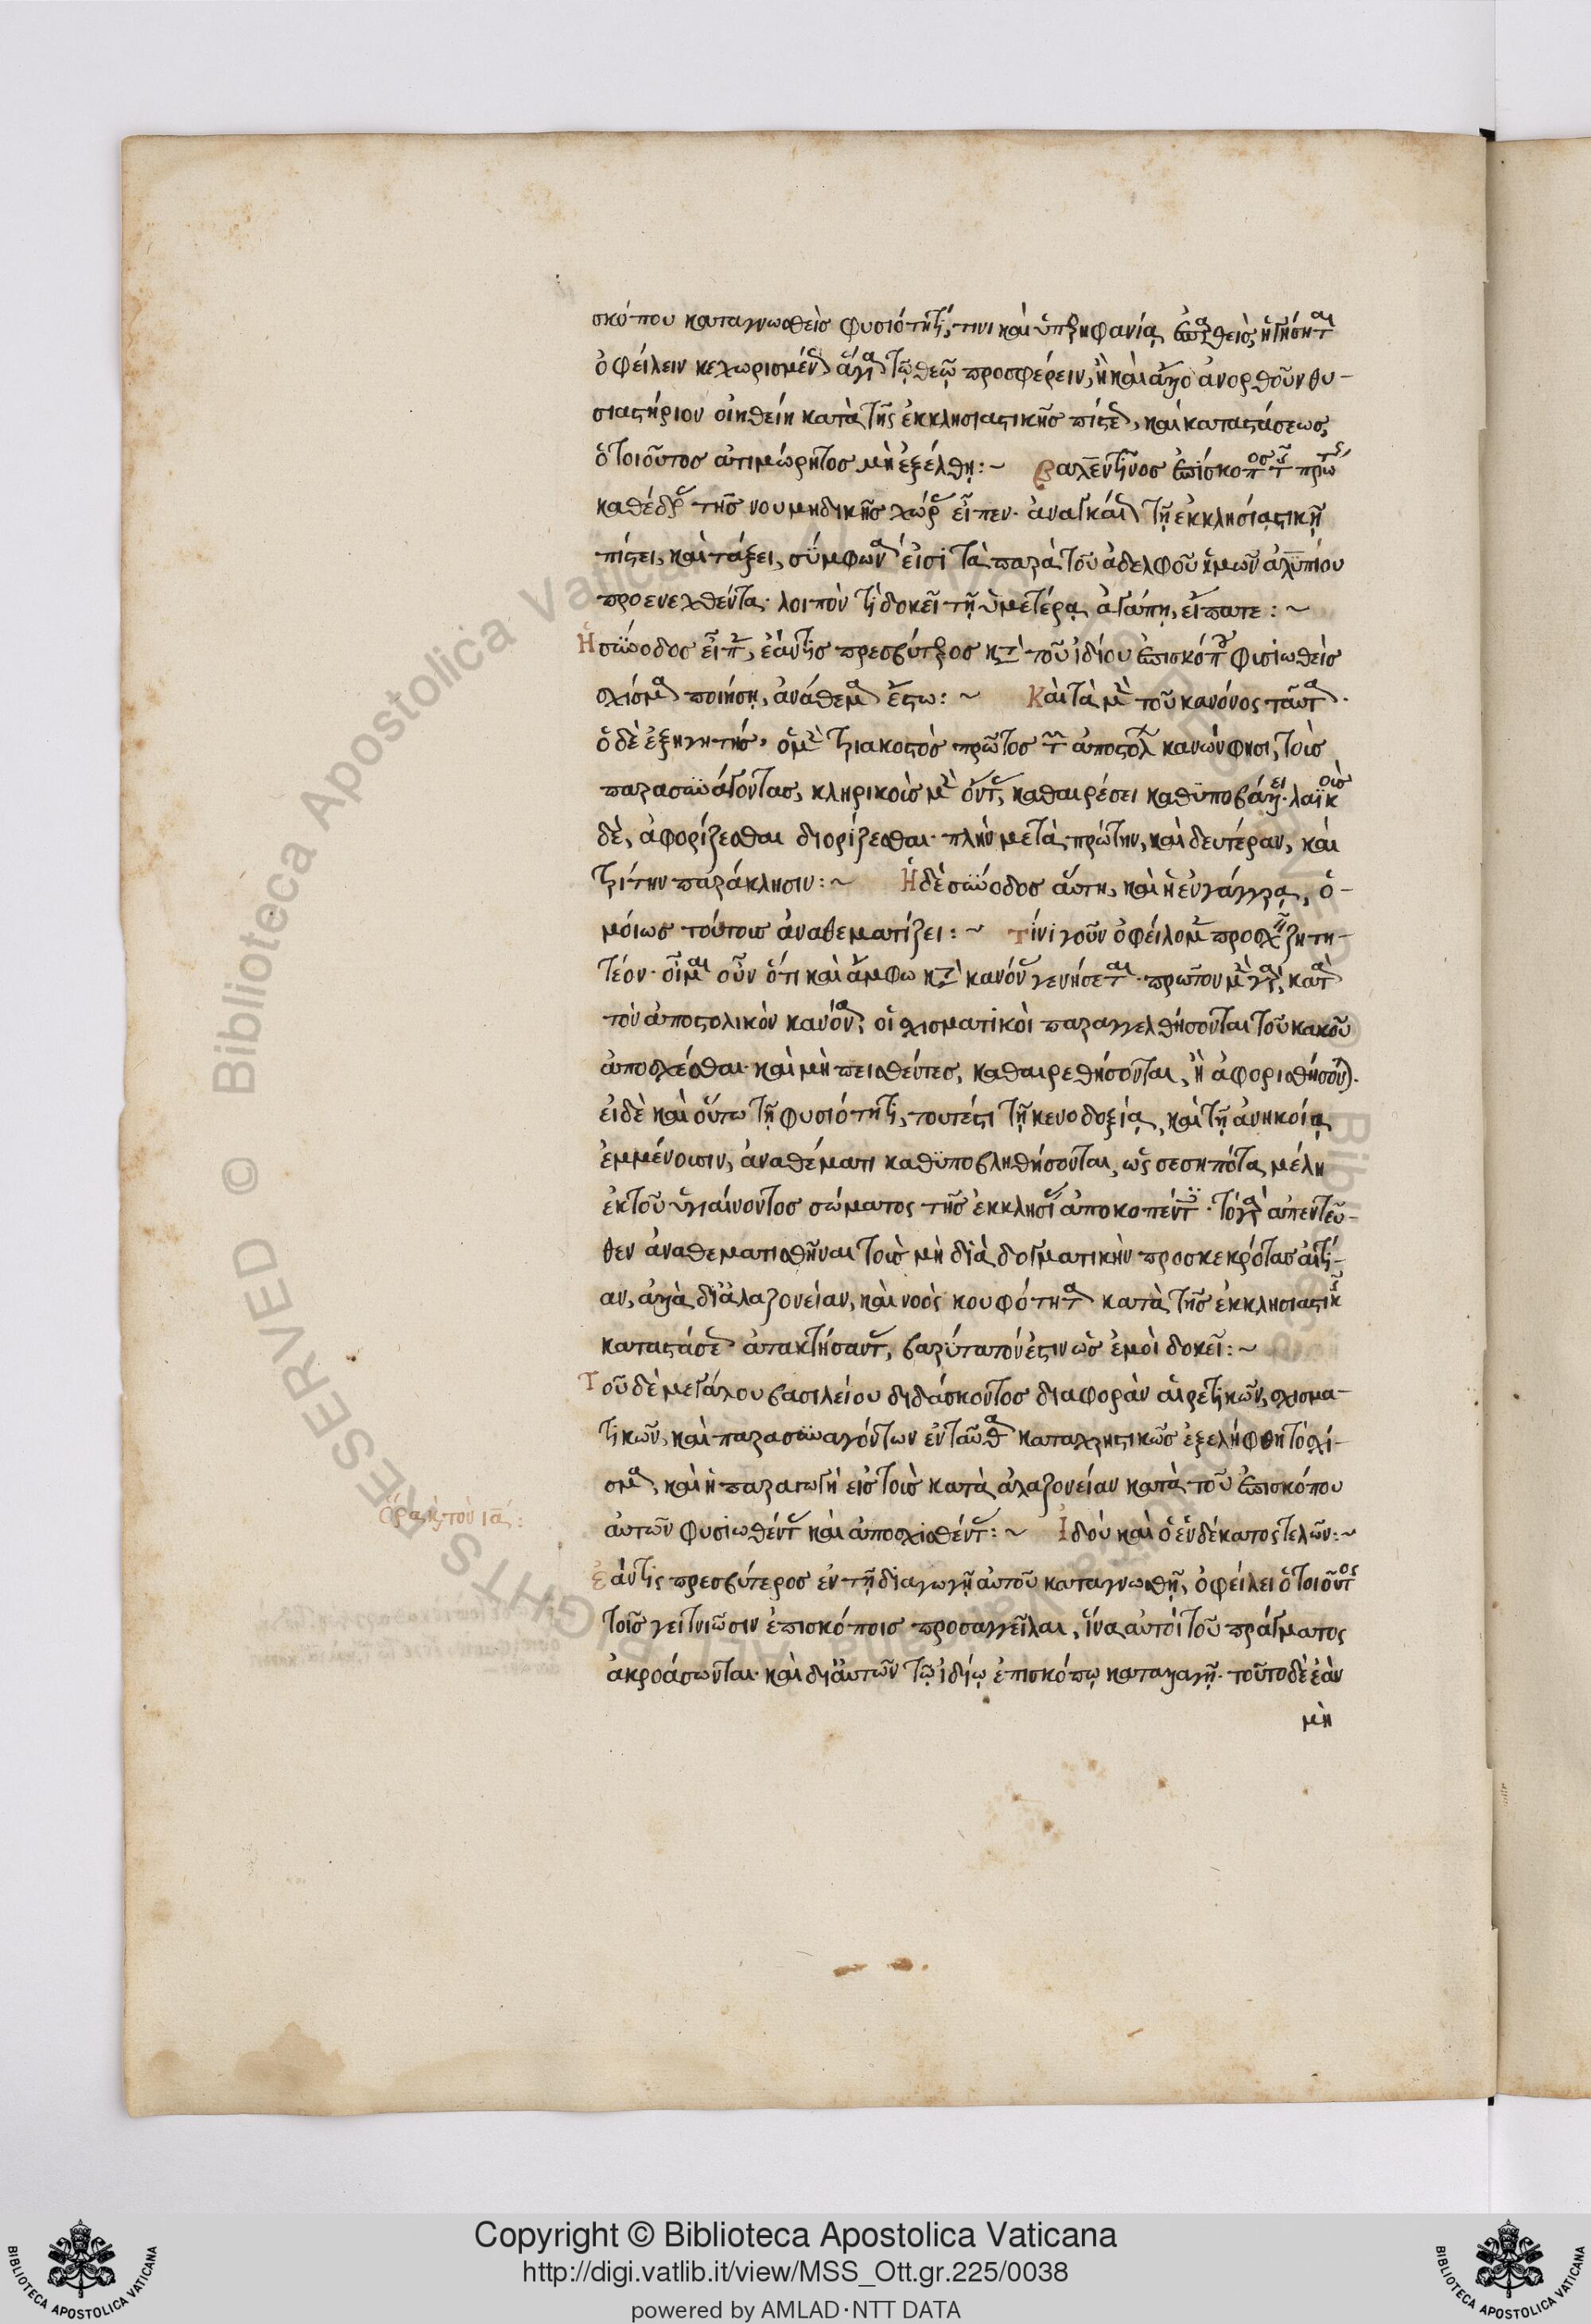 σκόπου καταγνωσθεὶς φυσιότητί τινι καὶ ὑπερηφανία ἐπαρθεὶς, ἡγήσηται
ὀφείλειν κεχωρισμένως ἅγια τῷ θεῷ προσφέρειν, ἢ καὶ ἄλλο ἀνορθοῦν θυ-
σιαστήριον οἰηθείη κατὰ τῆς ἐκκλησιαστικῆς πίστεως, καὶ καταστάσεως,
ὁ τοιοῦτος ἀτιμώρητος μὴ ἐξέλθῃ:~ Βαλεντῖνος ἐπίσκοπος τῆς πρώτης
καθέδρας τῆς νουμηδικῆς χώρας εἶπεν· ἀναγκαίως τῇ ἐκκλησιαστικῇ
πίστει, καὶ τάξει, σύμφωνα εἰσὶ τὰ παρὰ τοῦ ἀδελφοῦ ἡμῶν ἀλυπίου
προενεχθέντα· λοιπὸν τί δοκεῖ τῇ ὑμετέρᾳ ἀγάπῃ, εἴπατε:~
Ἡ σύνοδος εἶπεν, ἐάν τις πρεσβύτερος κατὰ τοῦ ἰδίου ἐπισκόπου φισιωθεὶς
σχίσμα ποιήσῃ, ἀνάθεμα ἔστω:~ Καὶ τὰ μὲν τοῦ κανόνος ταῦτα·
ὁ δὲ ἐξηγητής, ὁ μὲν τριακοστὸς πρῶτος τῶν ἀποστολικῶν κανών φησι, τοὺς
παρασυνάγοντας, κληρικοὺς μὲν ὄντας, καθαιρέσει καθυποβάλλει· λαϊκοὺς
δὲ, ἀφορίζεσθαι διορίζεσθαι· πλὴν μετὰ πρώτην, καὶ δευτέραν, καὶ
τρίτην παράκλησιν:~ Ἡ δὲ σύνοδος αὕτη, καὶ ἡ ἐν γάγγρᾳ, ὁ-
μοίως τούτους ἀναθεματίζει:~ Τίνι γοῦν ὀφείλομεν προσχεῖν ζητη-
τέον· οἶμαι οὖν ὅτι καὶ ἄμφω κατὰ κανόνας γενήσεται· πρῶτον μὲν γὰρ κατὰ
τὸν ἀποστολικὸν κανόνα, οἱ σχισματικοὶ παραγγελθήσονται τοῦ κακοῦ
ἀποσχέσθαι· καὶ μὴ πεισθέντες, καθαιρεθήσονται, ἢ ἀφορισθήσονται.
εἰ δὲ καὶ οὕτω τῇ φυσιότητι, τουτέστι τῇ κενοδοξίᾳ, καὶ τῇ ἀνηκοΐᾳ
ἐμμένοισιν, ἀναθέματι καθυποβληθήσονται, ὡς σεσηπότα μέλη
ἐκ τοῦ ὑγιαίνοντος σώματος τῆς ἐκκλησίας ἀποκοπέντα· τὸ γὰρ ἀπεντεῦ-
θεν ἀναθεματισθῆναι τοὺς μὴ διὰ δογματικὴν προσκεκρότας αἰτί-
αν, ἀλλὰ δι' ἀλαζονείαν, καὶ νοὸς κουφότητα κατὰ τῆς ἐκκλησιαστικῆς
καταστάσεως ἀτακτήσαντας, βαρύτατόν ἐστιν ὡς ἐμοὶ δοκεῖ:~
Τοῦ δὲ μεγάλου βασιλείου διδάσκοντος διαφορὰν αἱρετικῶν, σχισμα-
τικῶν, καὶ παρασυναγόντων ἐνταῦθα καταχρηστικῶς ἐξελήφθη τὸ σχί-
σμα, καὶ ἡ παραγωγὴ εἰς τοὺς κατὰ ἀλαζονείαν κατὰ τοῦ ἐπισκόπου
αὐτῶν φυσιωθέντας καὶ ἀποσχισθέντας:~ Ἰδοὺ καὶ ὁ ἑνδέκατος τελῶν:~
ὅρα κ(αὶ) τὸν ια:
Ἐάν τις πρεσβύτερος ἐν τῇ διαγωγῇ αὐτοῦ καταγνωσθῇ, ὀφείλει ὁ τοιοῦτος
τοῖς γειτνιῶσιν ἐπισκόποις προσαγγεῖλαι, ἵνα αὐτοὶ τοῦ πράγματος
ἀκροάσωνται· καὶ δι' αὐτῶν τῷ ἰδίῳ ἐπισκόπῳ καταλλαγῇ· τοῦτο δὲ ἐὰν
μὴ
Copyright © Biblioteca Apostolica Vaticana
http://digi.vatlib.it/view/MSS_Ott.gr.225/0038
powered by AMLAD·NTT DATA